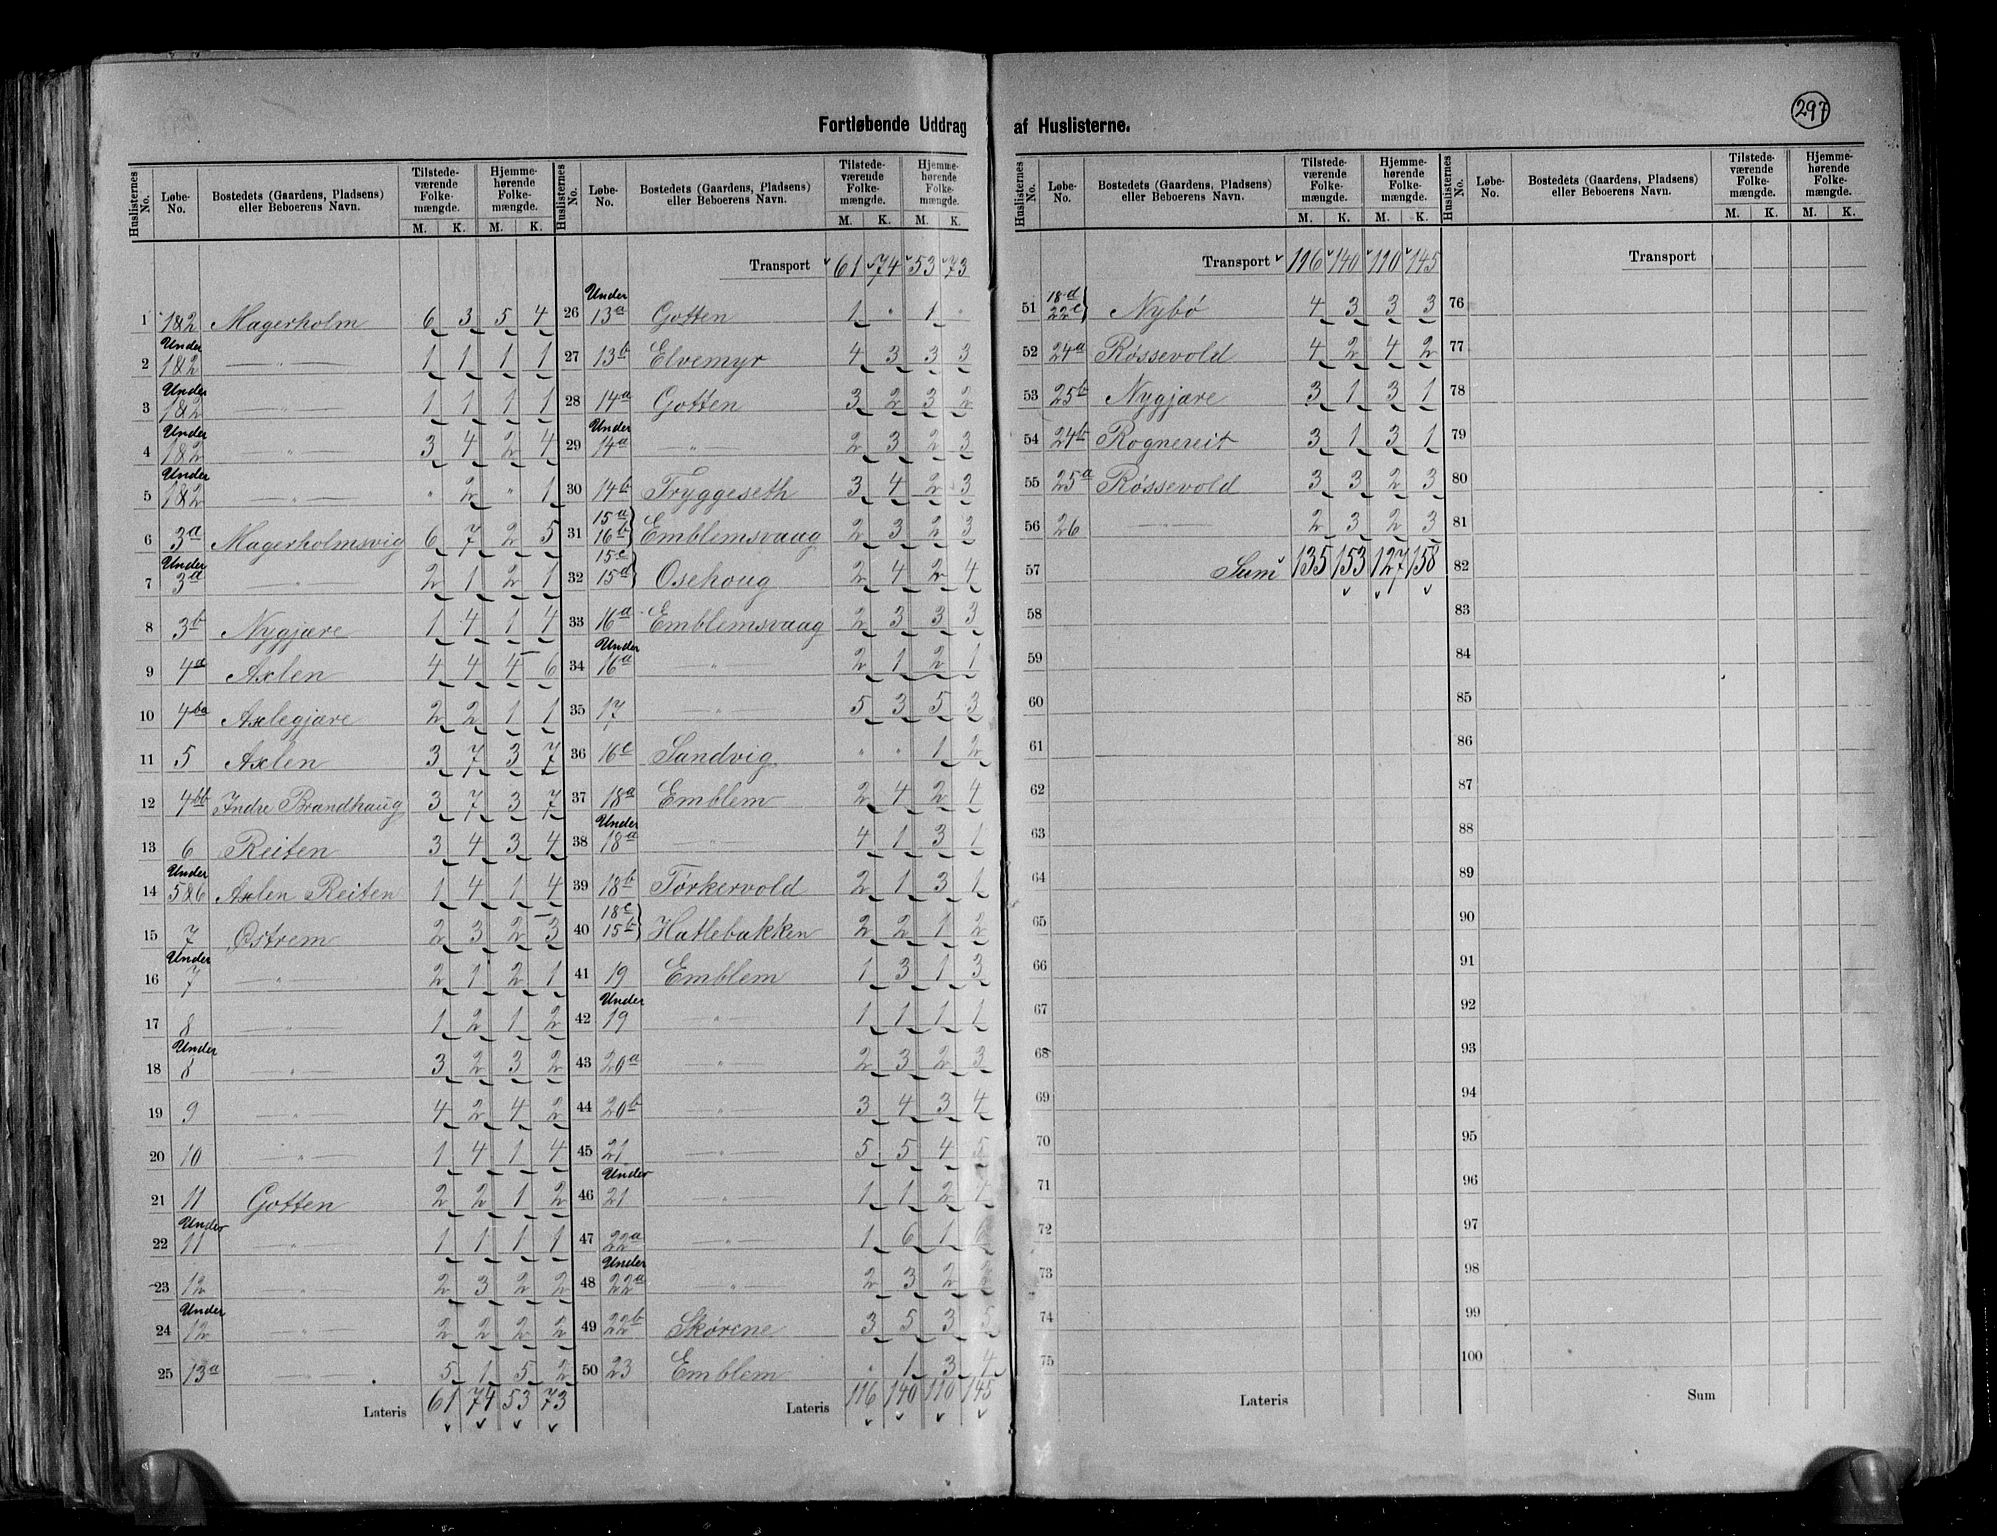 297
Fortløbende Uddrag af Huslisterne.
Huslisternes No. | Løbe-No. | Bostedets (Gaardens, Pladsens) eller Beboerens Navn. | Tilstedeværende Folkemængde. M. K. | Hjemmehørende Folkemængde. M. K.
1 | 1&2 | Magerholm | 6 | 3 | 5 | 4
2 | Under 1&2 | — " — | 1 | 1 | 1 | 1
3 | Under 1&2 | — " — | 1 | 1 | 1 | 1
4 | Under 1&2 | — " — | 3 | 4 | 2 | 4
5 | Under 1&2 | — " — | " | 2 | " | 1
6 | 3a | Magerholmsvig | 6 | 7 | 2 | 5
7 | Under 3a | — " — | 2 | 1 | 2 | 1
8 | 3b | Nygjære | 1 | 4 | 1 | 4
9 | 4a | Axlen | 4 | 4 | 4 | 6
10 | 4ba | Axlegjære | 2 | 2 | 1 | 1
11 | 5 | Axlen | 3 | 7 | 3 | 7
12 | 4bb | Indre Brandhaug | 3 | 7 | 3 | 7
13 | 6 | Reiten | 3 | 4 | 3 | 4
14 | Under 5&6 | Axlen Reiten | 1 | 4 | 1 | 4
15 | 7 | Østrem | 2 | 3 | 2 | 3
16 | Under 7 | — " — | 2 | 1 | 2 | 1
17 | 8 | — " — | 1 | 2 | 1 | 2
18 | Under 8 | — " — | 3 | 2 | 3 | 2
19 | 9 | — " — | 4 | 2 | 4 | 2
20 | 10 | — " — | 1 | 4 | 1 | 4
21 | 11 | Gotten | 2 | 2 | 1 | 2
22 | Under 11 | — " — | 1 | 1 | 1 | 1
23 | 12 | — " — | 2 | 3 | 2 | 2
24 | Under 12 | — " — | 2 | 2 | 2 | 2
25 | 13a | — " — | 5 | 1 | 5 | 2
Lateris | 61 | 74 | 53 | 73
Huslisternes No. | Løbe-No. | Bostedets (Gaardens, Pladsens) eller Beboerens Navn. | Tilstedeværende Folkemængde. M. K. | Hjemmehørende Folkemængde. M. K.
Transport | 61 | 74 | 53 | 73
26 | Under 13a | Gotten | 1 | " | 1 | "
27 | 13b | Elvemyr | 4 | 3 | 3 | 3
28 | 14a | Gotten | 3 | 2 | 3 | 2
29 | Under 14a | — " — | 2 | 3 | 2 | 3
30 | 14b | Tryggeseth | 3 | 4 | 2 | 3
31 | 15a 16b } | Emblemsvaag | 2 | 3 | 2 | 3
32 | 15c 15d } | Osehoug | 2 | 4 | 2 | 4
33 | 16a | Emblemsvaag | 2 | 3 | 3 | 3
34 | Under 16a | — " — | 2 | 1 | 2 | 1
35 | 17 | — " — | 5 | 3 | 5 | 3
36 | 16c | Sandvig | " | " | 1 | 2
37 | 18a | Emblem | 2 | 4 | 2 | 4
38 | Under 18a | — " — | 4 | 1 | 3 | 1
39 | 18b | Tørkervold | 2 | 1 | 3 | 1
40 | 18c 15b } | Hatlebakken | 2 | 2 | 1 | 2
41 | 19 | Emblem | 1 | 3 | 1 | 3
42 | Under 19 | — " — | 1 | 1 | 1 | 1
43 | 20a | — " — | 2 | 3 | 2 | 3
44 | 20b | — " — | 3 | 4 | 3 | 4
45 | 21 | — " — | 5 | 5 | 4 | 5
46 | Under 21 | — " — | 1 | 1 | 2 | 1
47 | 22a | — " — | 1 | 6 | 1 | 6
48 | Under 22a | — " — | 2 | 3 | 2 | 2
49 | 22b | Skørene | 3 | 5 | 3 | 5
50 | 23 | Emblem | " | 1 | 3 | 4
Lateris | 116 | 140 | 110 | 145
Huslisternes No. | Løbe-No. | Bostedets (Gaardens, Pladsens) eller Beboerens Navn. | Tilstedeværende Folkemængde. M. K. | Hjemmehørende Folkemængde. M. K.
Transport | 116 | 140 | 110 | 145
51 | 18d 22c } | Nybø | 4 | 3 | 3 | 3
52 | 24a | Røssevold | 4 | 2 | 4 | 2
53 | 25b | Nygjære | 3 | 1 | 3 | 1
54 | 24b | Rognereit | 3 | 1 | 3 | 1
55 | 25a | Røssevold | 3 | 3 | 2 | 3
56 | 26 | — " — | 2 | 3 | 2 | 3
57 | Sum | 135 | 153 | 127 | 158
58
59
60
61
62
63
64
65
66
67
68
69
70
71
72
73
74
75
Lateris
Huslisternes No. | Løbe-No. | Bostedets (Gaardens, Pladsens) eller Beboerens Navn. | Tilstedeværende Folkemængde. M. K. | Hjemmehørende Folkemængde. M. K.
Transport
76
77
78
79
80
81
82
83
84
85
86
87
88
89
90
91
92
93
94
95
96
97
98
99
100
Sum